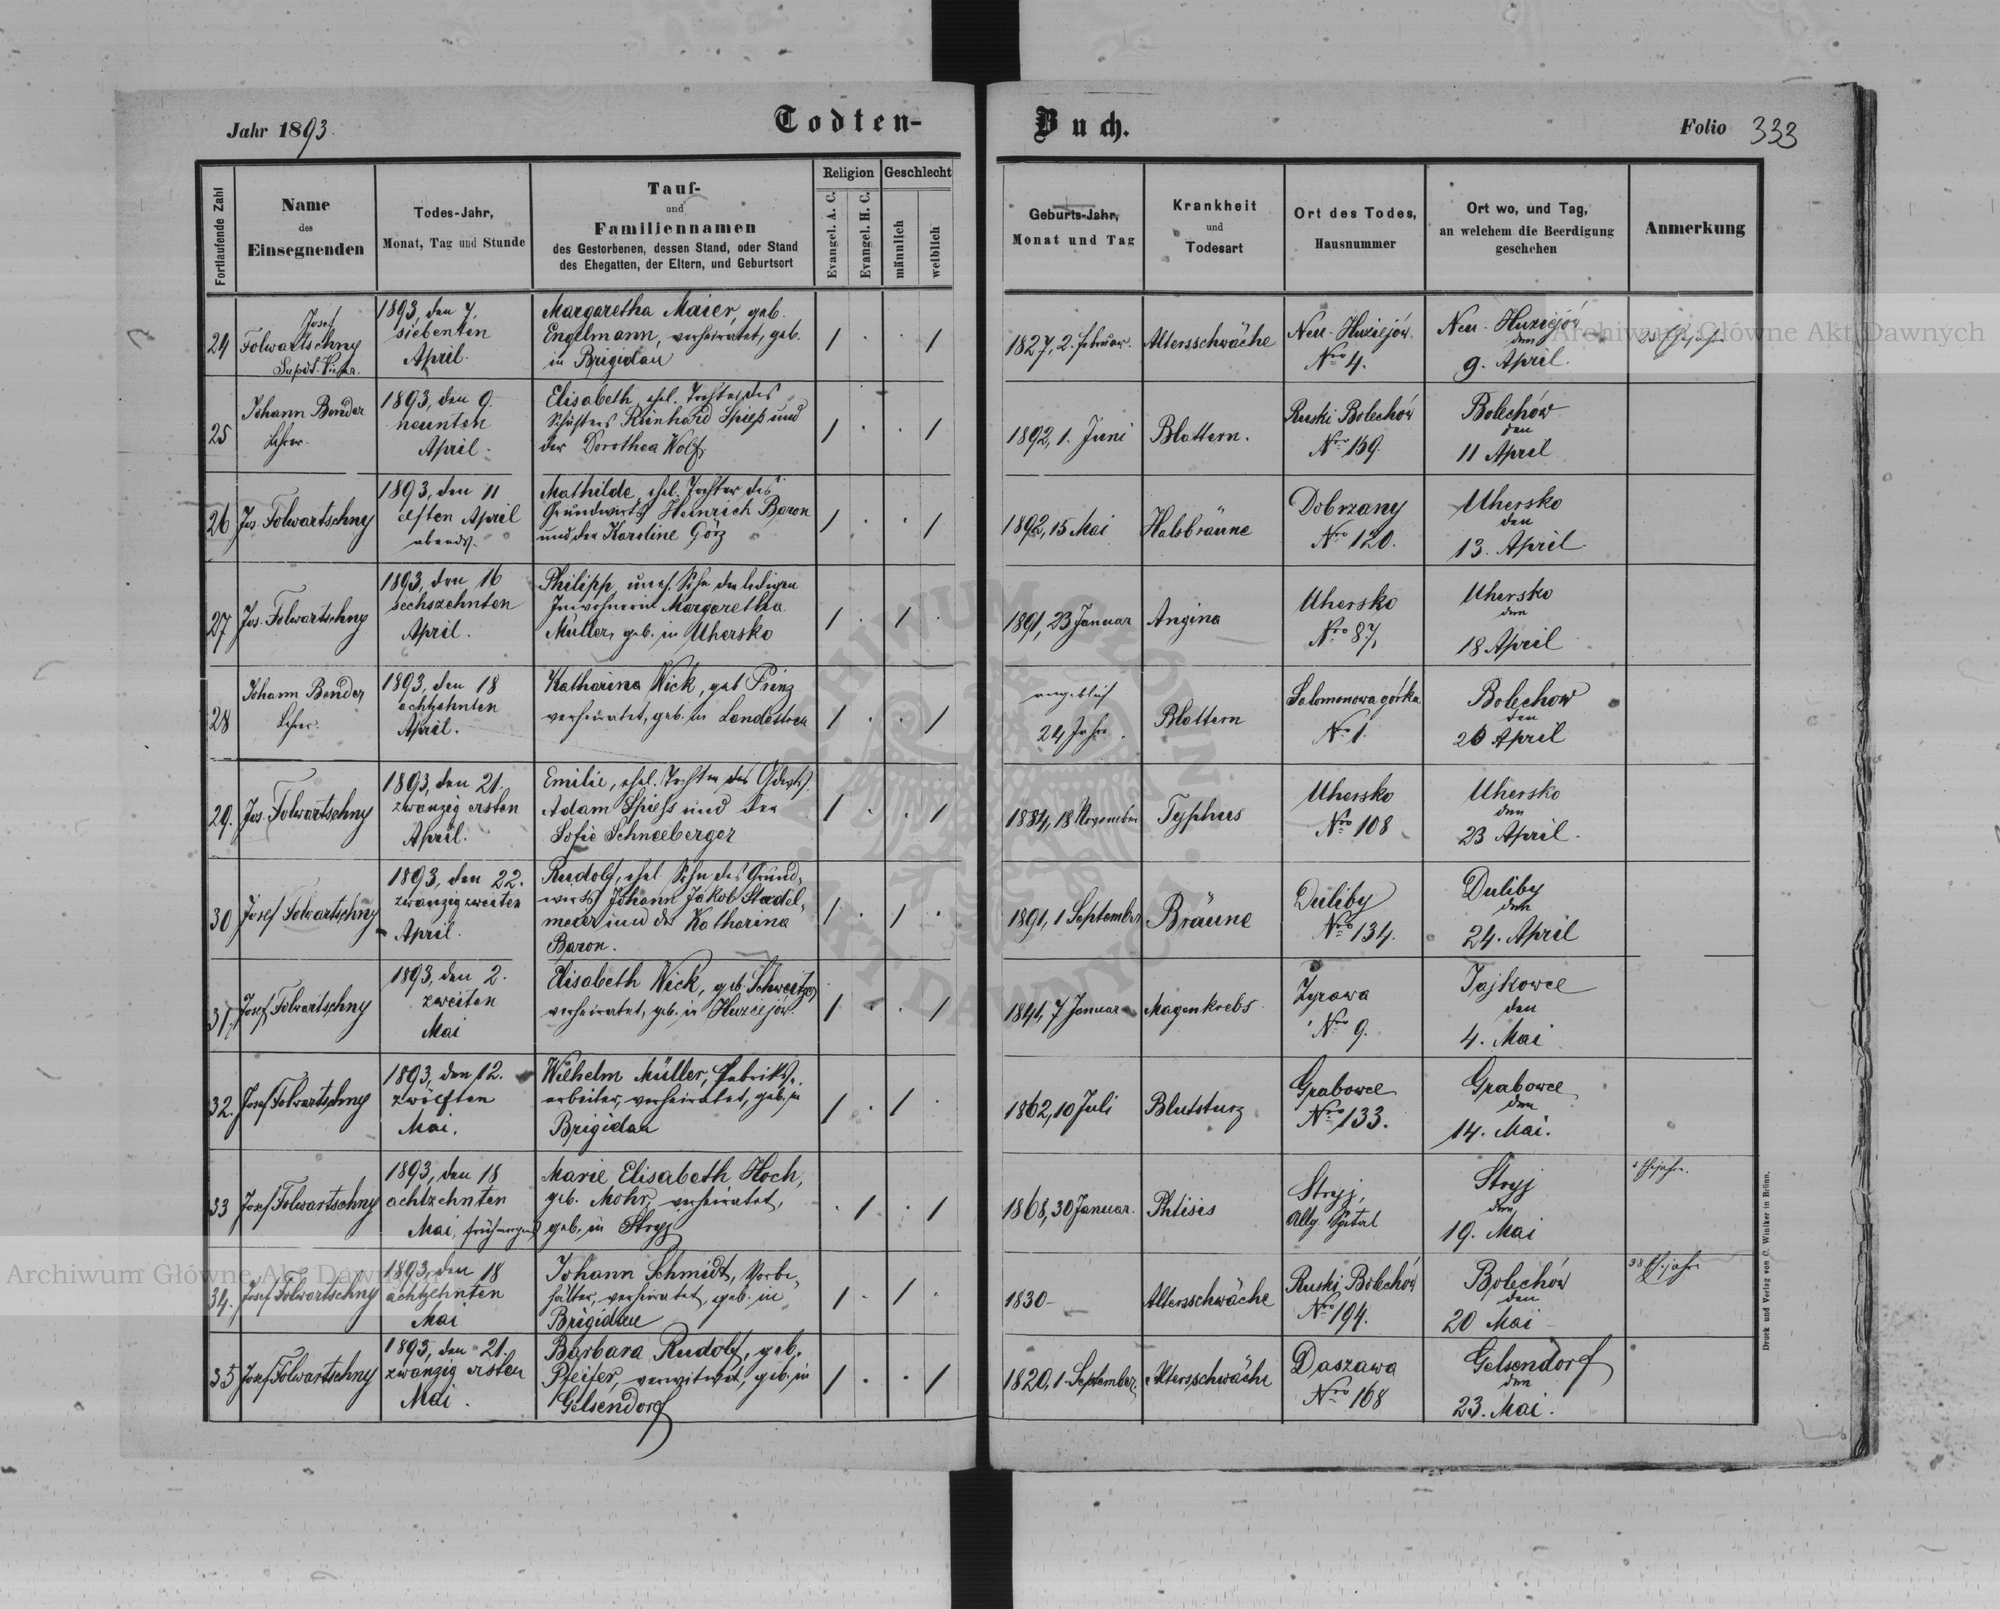 Jahr 1893.
Todten-
Buch.
Folio 333
Fortlaufende Zahl
Name
des
Einsegnenden
Todes-Jahr,
Monat, Tag und Stunde
Tauf-
und
Familiennamen
des Gestorbenen, dessen Stand, oder Stand
des Ehegatten, der Eltern, und Geburtsort
Religion
Evangel. A. C.
Evangel. H. C.
Geschlecht
männlich
weiblich
Geburts-Jahr,
Monat und Tag
Krankheit
und
Todesart
Ort des Todes,
Hausnummer
Ort wo, und Tag,
an welchem die Beerdigung
geschehen
Anmerkung
24
Josef
Folwartschny
Supdt. Vicar.
1893, den 7.
siebenten
April.
Margaretha Maier, geb.
Engelmann, verheiratet, geb.
in Brigidau
1827, 2. Februar.
Altersschwäche
Neu-Huziejów
Nro 4.
Neu-Huziejów
den
9. April.
25
Johann Bender
Lehrer.
1893, den 9.
neunten
April.
Elisabeth, ehel. Tochter des
Schusters Reinhard Spieß und
der Dorothea Wolf.
1892, 1. Juni
Blattern.
Ruski Bolechów
Nro 159.
Bolechów
den
11 April
26
Jos. Folwartschny
1893, den 11
elften April
abends.
Mathilde, ehel. Tochter des
Grundwirts Heinrich Baron
und der Karoline Görz
1892, 15 Mai
Halsbräune
Dobrzany
Nro 120.
Uhersko
den
13. April.
27
Jos. Folwartschny
1893, den 16
sechszehnten
April.
Philipp, unehl. Sohn der ledigen
Inwohnerin Margaretha
Müller, geb. in Uhersko
1891, 23 Januar
Angina
Uhersko
Nro 87,
Uhersko
den
18 April
28
Johann Bender
Lehrer.
1893, den 18
achtzehnten
April.
Katharina Wick, geb Prinz
verheiratet, geb. in Landestreu
angeblich
24 Jahre.
Blattern
Salamonowa górka
Nro 1.
Bolechow
den
20 April
29.
Jos. Folwartschny
1893, den 21.
zwanzig ersten
April.
Emilie, ehel. Tochter des Gdwts.
Adam Spiess und der
Sofie Schneeberger
1884, 18 November
Typhus
Uhersko
Nro 108
Uhersko
den
23 April.
30
Josef Folwartschny
1893, den 22.
zwanzig zweiten
April.
Rudolf, ehel. Sohn des Grund-
wirts Johann Jakob Stadel-
meier und der Katharina
Baron.
1891, 1 September
Bräune
Duliby
Nro 134.
Duliby
den
24. April
31,
Josef Folwartschny
1893, den 2.
zweiten
Mai
Elisabeth Wick, geb. Schweitzer
verheiratet, geb. in Huziejów.
1841, 7 Januar
Magenkrebs.
Zyrawa
Nro 9.
Jajkowce
den
4. Mai
32.
Josef Folwartschny
1893, den 12.
zwölften
Mai.
Wilhelm Müller, Fabriks-
arbeiter, verheiratet, geb. in
Brigidau
1862, 10 Juli
Blutsturz
Grabowce
Nro 133.
Grabowce
den
14. Mai.
33
Josef Folwartschny
1893, den 18
achtzehnten
Mai, frühmorgens
Marie Elisabeth Hoch,
geb. Mohr, verheiratet,
geb. in Stryj
1868, 30 Januar.
Phtisis
Stryj,
Allg Spital
Stryj
den
19. Mai
34.
Josef Folwartschny
1893, den 18
achtzehnten
Mai
Johann Schmidt, Vorbe-
hälter, verheiratet, geb. in
Brigidau
1830-
Altersschwäche
Ruski Bolechów
Nro 194.
Bolechów
den
20 Mai
38 Ehejahr
35
Josef Folwartschny
1893, den 21.
zwanzig ersten
Mai.
Barbara Rudolf, geb.
Pfeifer, verwitwet, geb. in
Gelsendorf
1820, 1. September.
Altersschwäche
Daszawa
Nro 168
Gelsendorf
den
23. Mai.
Druck und Verlag von C. Winiker in Brünn.
Archiwum Główne Akt Dawnych
Archiwum Główne Akt Dawnych
ARCHIWUM GŁÓWNE AKT DAWNYCH